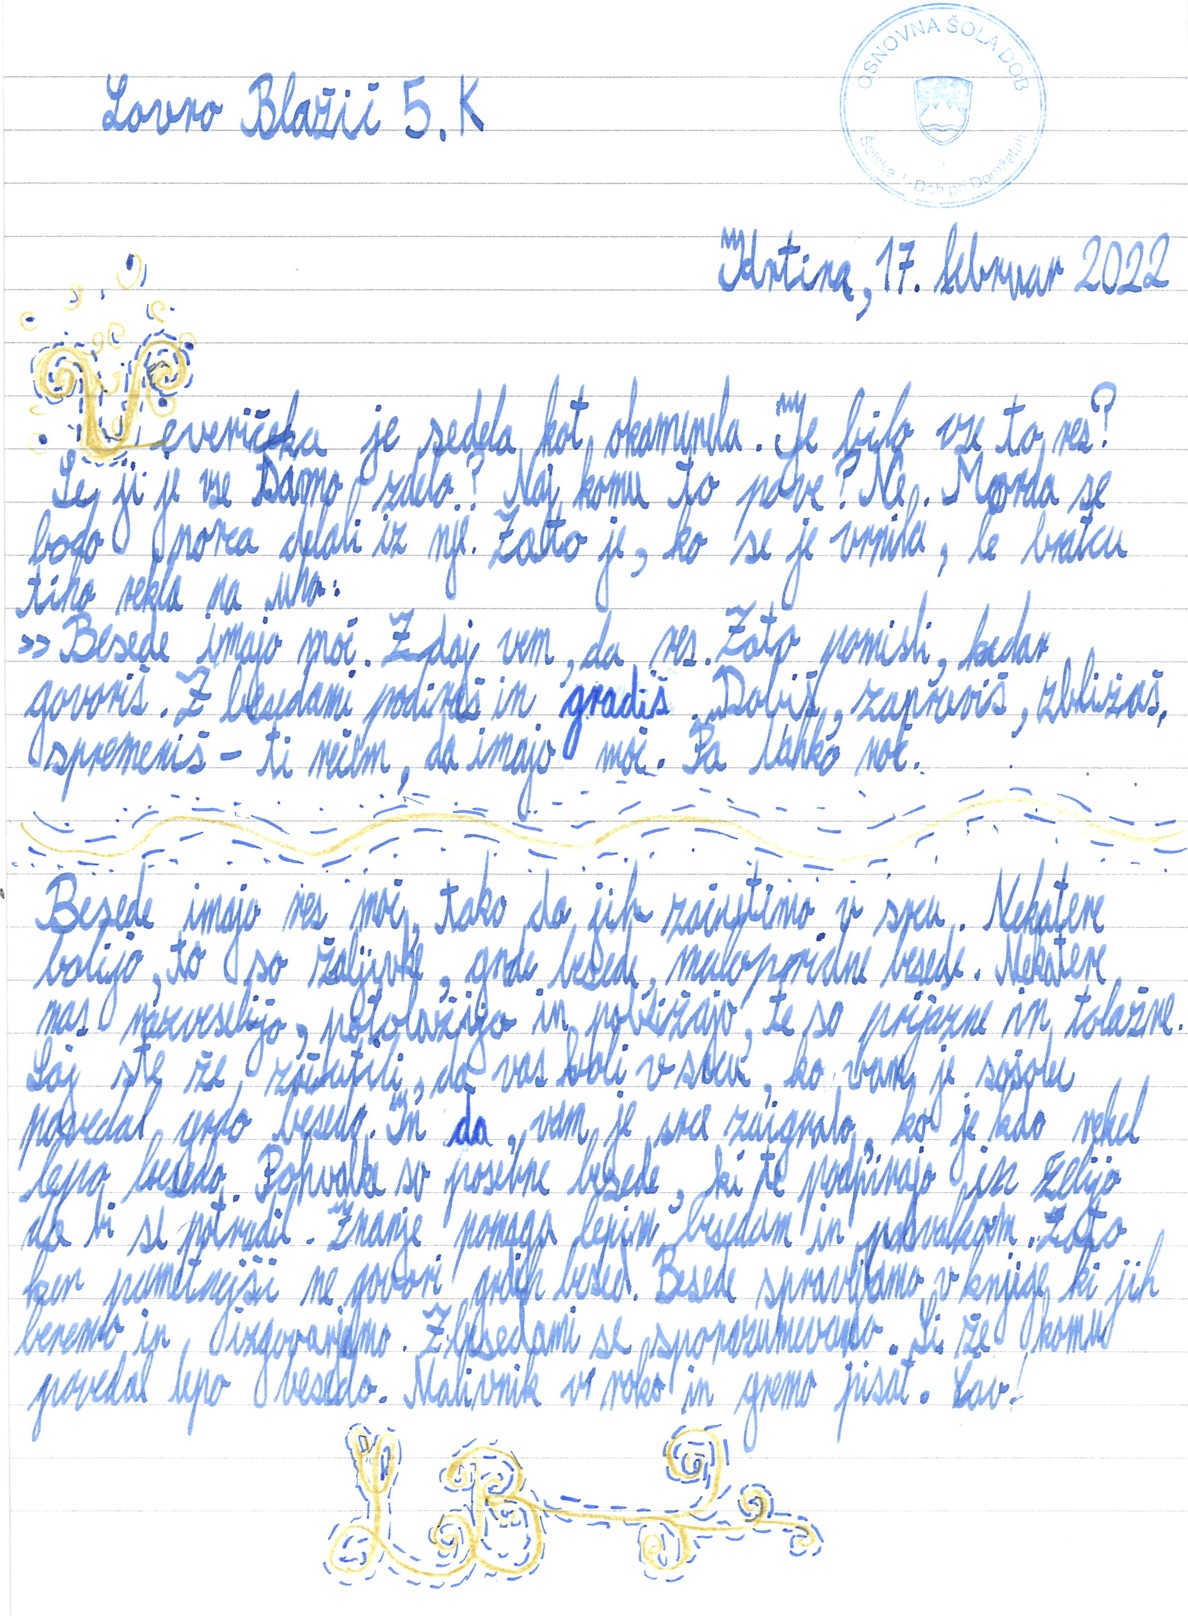 OSNOVNA ŠOLA DOB
Šolska 7, Dob pri Domžalah
Lovro Blažič 5. K
Krtina, 17. februar 2022
Veverička je sedela kot okamnela. Je bilo vse to res?
Se ji je vse samo zdelo? Naj komu to pove? Ne. Morda se
bodo norca delali iz nje. Zato je, ko se je vrnila, le bratcu
tiho rekla na uho:
»Besede imajo moč. Zdaj vem, da res. Zato pomisli, kadar
govoriš. Z besedami podiraš in gradiš. Dobiš, zapraviš, zbližaš,
spremeniš – ti rečem, da imajo moč. Pa lahko noč.
Besede imajo res moč, tako da jih začutimo v srcu. Nekatere
bolijo, to so žaljivke, grde besede, malopridne besede. Nekatere
nas razveselijo, potolažijo in pobližajo, te so prijazne in tolažne.
Saj ste že začutili, da vas boli v srcu, ko vam je sošolec
povedal grdo besedo. In da vam je srce zaigralo, ko je kdo rekel
lepo besedo. Pohvalke so posebne besede, ki te podpirajo in želijo
da bi se potrudil. Znanje pomaga lepim besedam in pohvalkom. Zato
ker pametnejši ne govori grdih besed. Besede spravljamo v knjige ki jih
beremo in izgovarjamo. Z besedami se sporazumevamo. Si že komu
povedal lepo besedo. Nalivnik v roko in gremo pisat. Čav!
LB